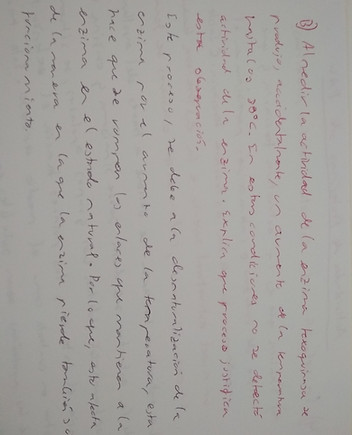 B) Al medir la actividad de la enzima hexoquinasa se
produjo, accidentalmente, un aumento de la temperatura
hasta los 70°C. En estas condiciones no se detectó
actividad de la enzima. Explica que proceso justifica
esta observación.
Este proceso, se debe a la desnaturalización de la
enzima por el aumento de la temperatura, esta
hace que se rompan los enlaces que mantienen a la
enzima en el estado natural. Por lo que, esto afecta
de la manera en la que la enzima pierde también su
funcionamiento.